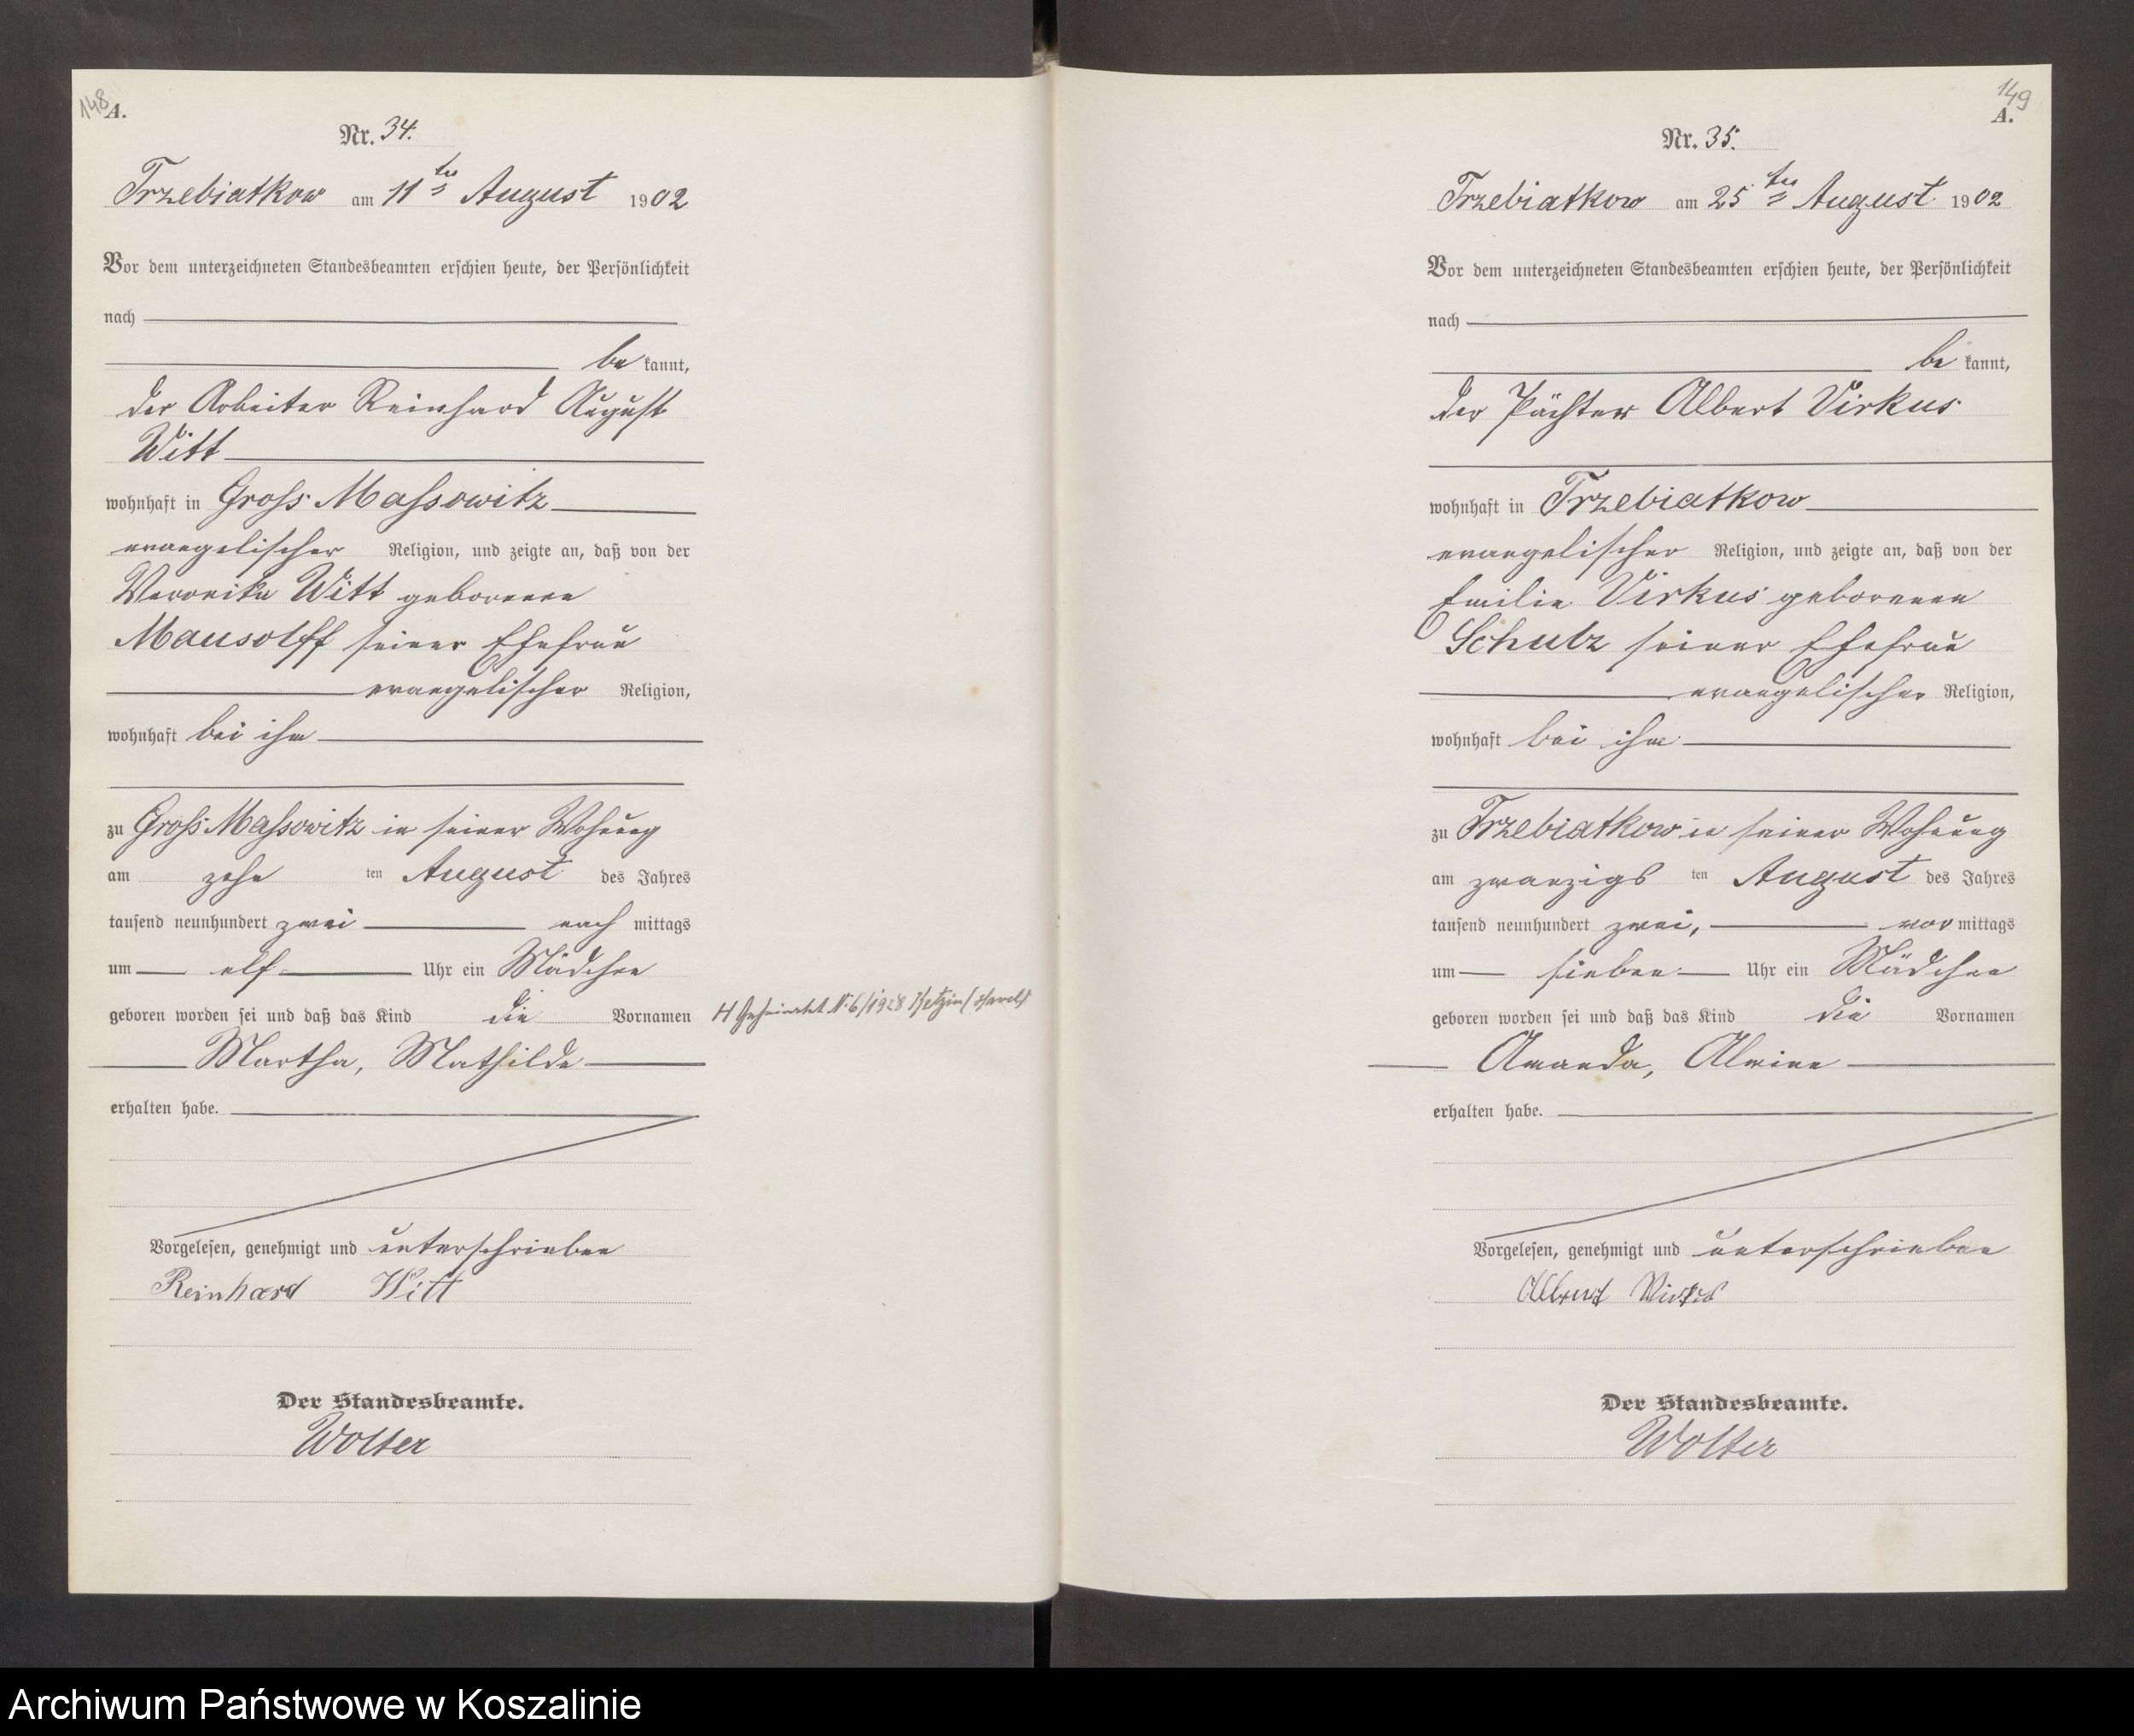 148
A.
Nr. 34.
Trzebiatkow am 11ten August 1902
Vor dem unterzeichneten Standesbeamten erschien heute, der Persönlichkeit
nach
be kannt,
der Arbeiter Reinhard August
Witt
wohnhaft in Gross Massowitz
evangelischer Religion, und zeigte an, daß von der
Veronika Witt geborenen
Mausolff seiner Ehefrau
evangelischer Religion,
wohnhaft bei ihm
zu Gross Massowitz in seiner Wohnung
am zehn ten August des Jahres
tausend neunhundert zwei nach mittags
um elf Uhr ein Mädchen
geboren worden sei und daß das Kind die Vornamen
H Geheiratet Nr. 6/1928
Martha, Mathilde
erhalten habe.
Vorgelesen, genehmigt und unterschrieben
Reinhard Witt
Der Standesbeamte.
Wolter
149
A.
Nr. 35.
Trzebiatkow am 25ten August 1902
Vor dem unterzeichneten Standesbeamten erschien heute, der Persönlichkeit
nach
be kannt,
der Pächter Albert Virkus
wohnhaft in Trzebiatkow
evangelischer Religion, und zeigte an, daß von der
Emilie Virkus geborenen
Schulz seiner Ehefrau
evangelischer Religion,
wohnhaft bei ihm
zu Trzebiatkow in seiner Wohnung
am zwanzigs ten August des Jahres
tausend neunhundert zwei, vor mittags
um sieben Uhr ein Mädchen
geboren worden sei und daß das Kind die Vornamen
Amanda, Alwine
erhalten habe.
Vorgelesen, genehmigt und unterschrieben
Albert Virkus
Der Standesbeamte.
Wolter
Archiwum Państwowe w Koszalinie